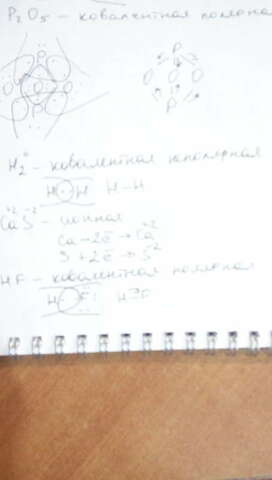 P₂O₅ – ковалентная полярная
P
O O O
P
H₂⁰ – ковалентная неполярная
H : H H – H
Ca⁺²S⁻² – ионная
Ca – 2ē → Ca⁺²
S + 2ē → S⁻²
HF – ковалентная полярная
H : F: